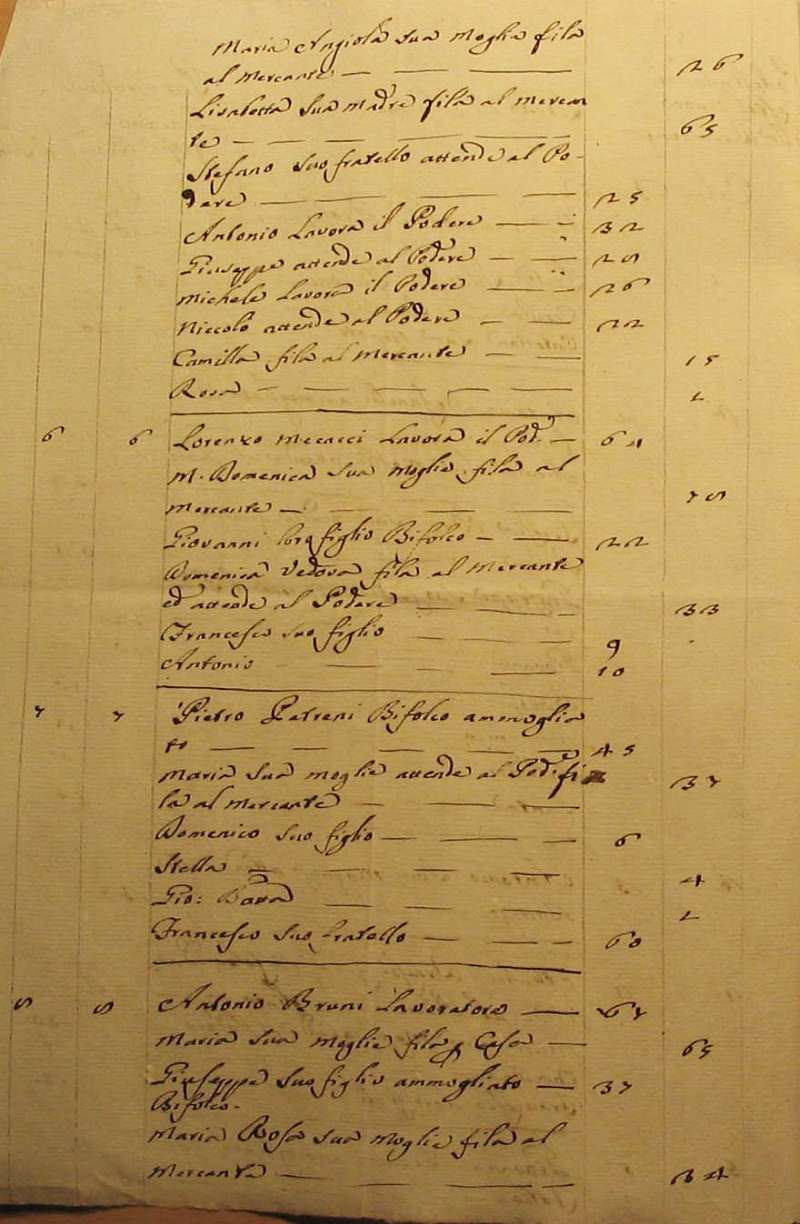 Maria Angiola sua Moglie fila
al Mercante — — — 26
Lisabetta sua Madre fila al Mercan
te — — — — 65
Stefano suo fratello attende al Po-
dere — — — 25
Antonio Lavora il Podere — — 32
Giuseppe attende al Podere — —
Michele Lavora il Podere — — 26
Niccolo attende al Podere — — 22
Camilla fila al Mercante — — 15
Rosa — — — — —
6 6 Lorenzo Mecacci Lavora il Pod.e —
M. Domenica sua Moglie fila al
Mercante — — — —
Giovanni loro figlio Bifolco — — 22
Domenica Vedova fila al Mercante
ed attende al Podere — — 33
Francesco suo figlio — — 9
Antonio — — — — 10
7 7 Pietro Petreni Bifolco ammoglia
to — — — — — 45
Maria sua Moglie attende al Pod.e fi
la al Mercante — — — 37
Domenico suo figlio — — — 6
Stella — — — — 4
Gio: Batta — — —
Francesco suo fratello — — — 60
Antonio Bruni Lavoratore — 67
Maria sua Moglie fila p Casa — 65
Giuseppe suo figlio ammogliato — 37
Bifolco.
Maria Rosa sua Moglie fila al
Mercante — — — 34